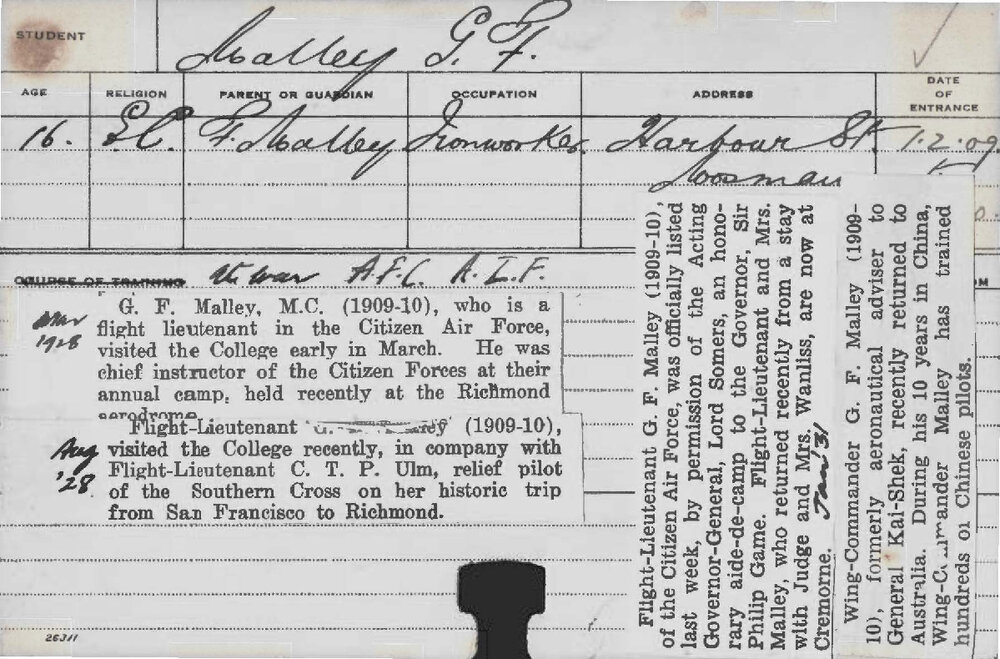 STUDENT
Malley G. F.
AGE RELIGION PARENT OR GUARDIAN OCCUPATION ADDRESS DATE OF ENTRANCE
16. F. Malley Ironworker Harbour St. 1.2.09
Mosman
COURSE OF TRAINING War A.F.C. A.I.F.
" G. F. Malley, M.C. (1909-10), who is a
flight lieutenant in the Citizen Air Force,
visited the College early in March. He was
chief instructor of the Citizen Forces at their
annual camp, held recently at the Richmond
aerodrome.
Mar 1928
Flight-Lieutenant G. (1909-10),
visited the College recently, in company with
Flight-Lieutenant C. T. P. Ulm, relief pilot
of the Southern Cross on her historic trip
from San Francisco to Richmond.
Aug '28
Flight-Lieutenant G. F. Malley (1909-10),
of the Citizen Air Force, was officially listed
last week, by permission of the Acting
Governor-General, Lord Somers, an hono-
rary aide-de-camp to the Governor, Sir
Philip Game. Flight-Lieutenant and Mrs.
Malley, who returned recently from a stay
with Judge and Mrs. Wanliss, are now at
Cremorne. Jan '31
Wing-Commander G. F. Malley (1909-
10), formerly aeronautical adviser to
General Kai-Shek, recently returned to
Australia. During his 10 years in China,
Wing-Commander Malley has trained
hundreds of Chinese pilots.
26311